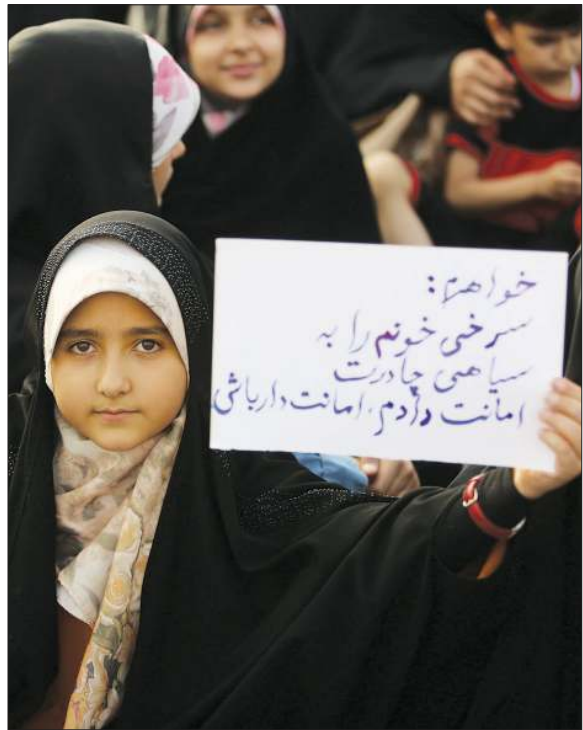 خواهرم:
سرخی خونم را به
سیاهی چادرت
امانت دادم، امانت دار باشی